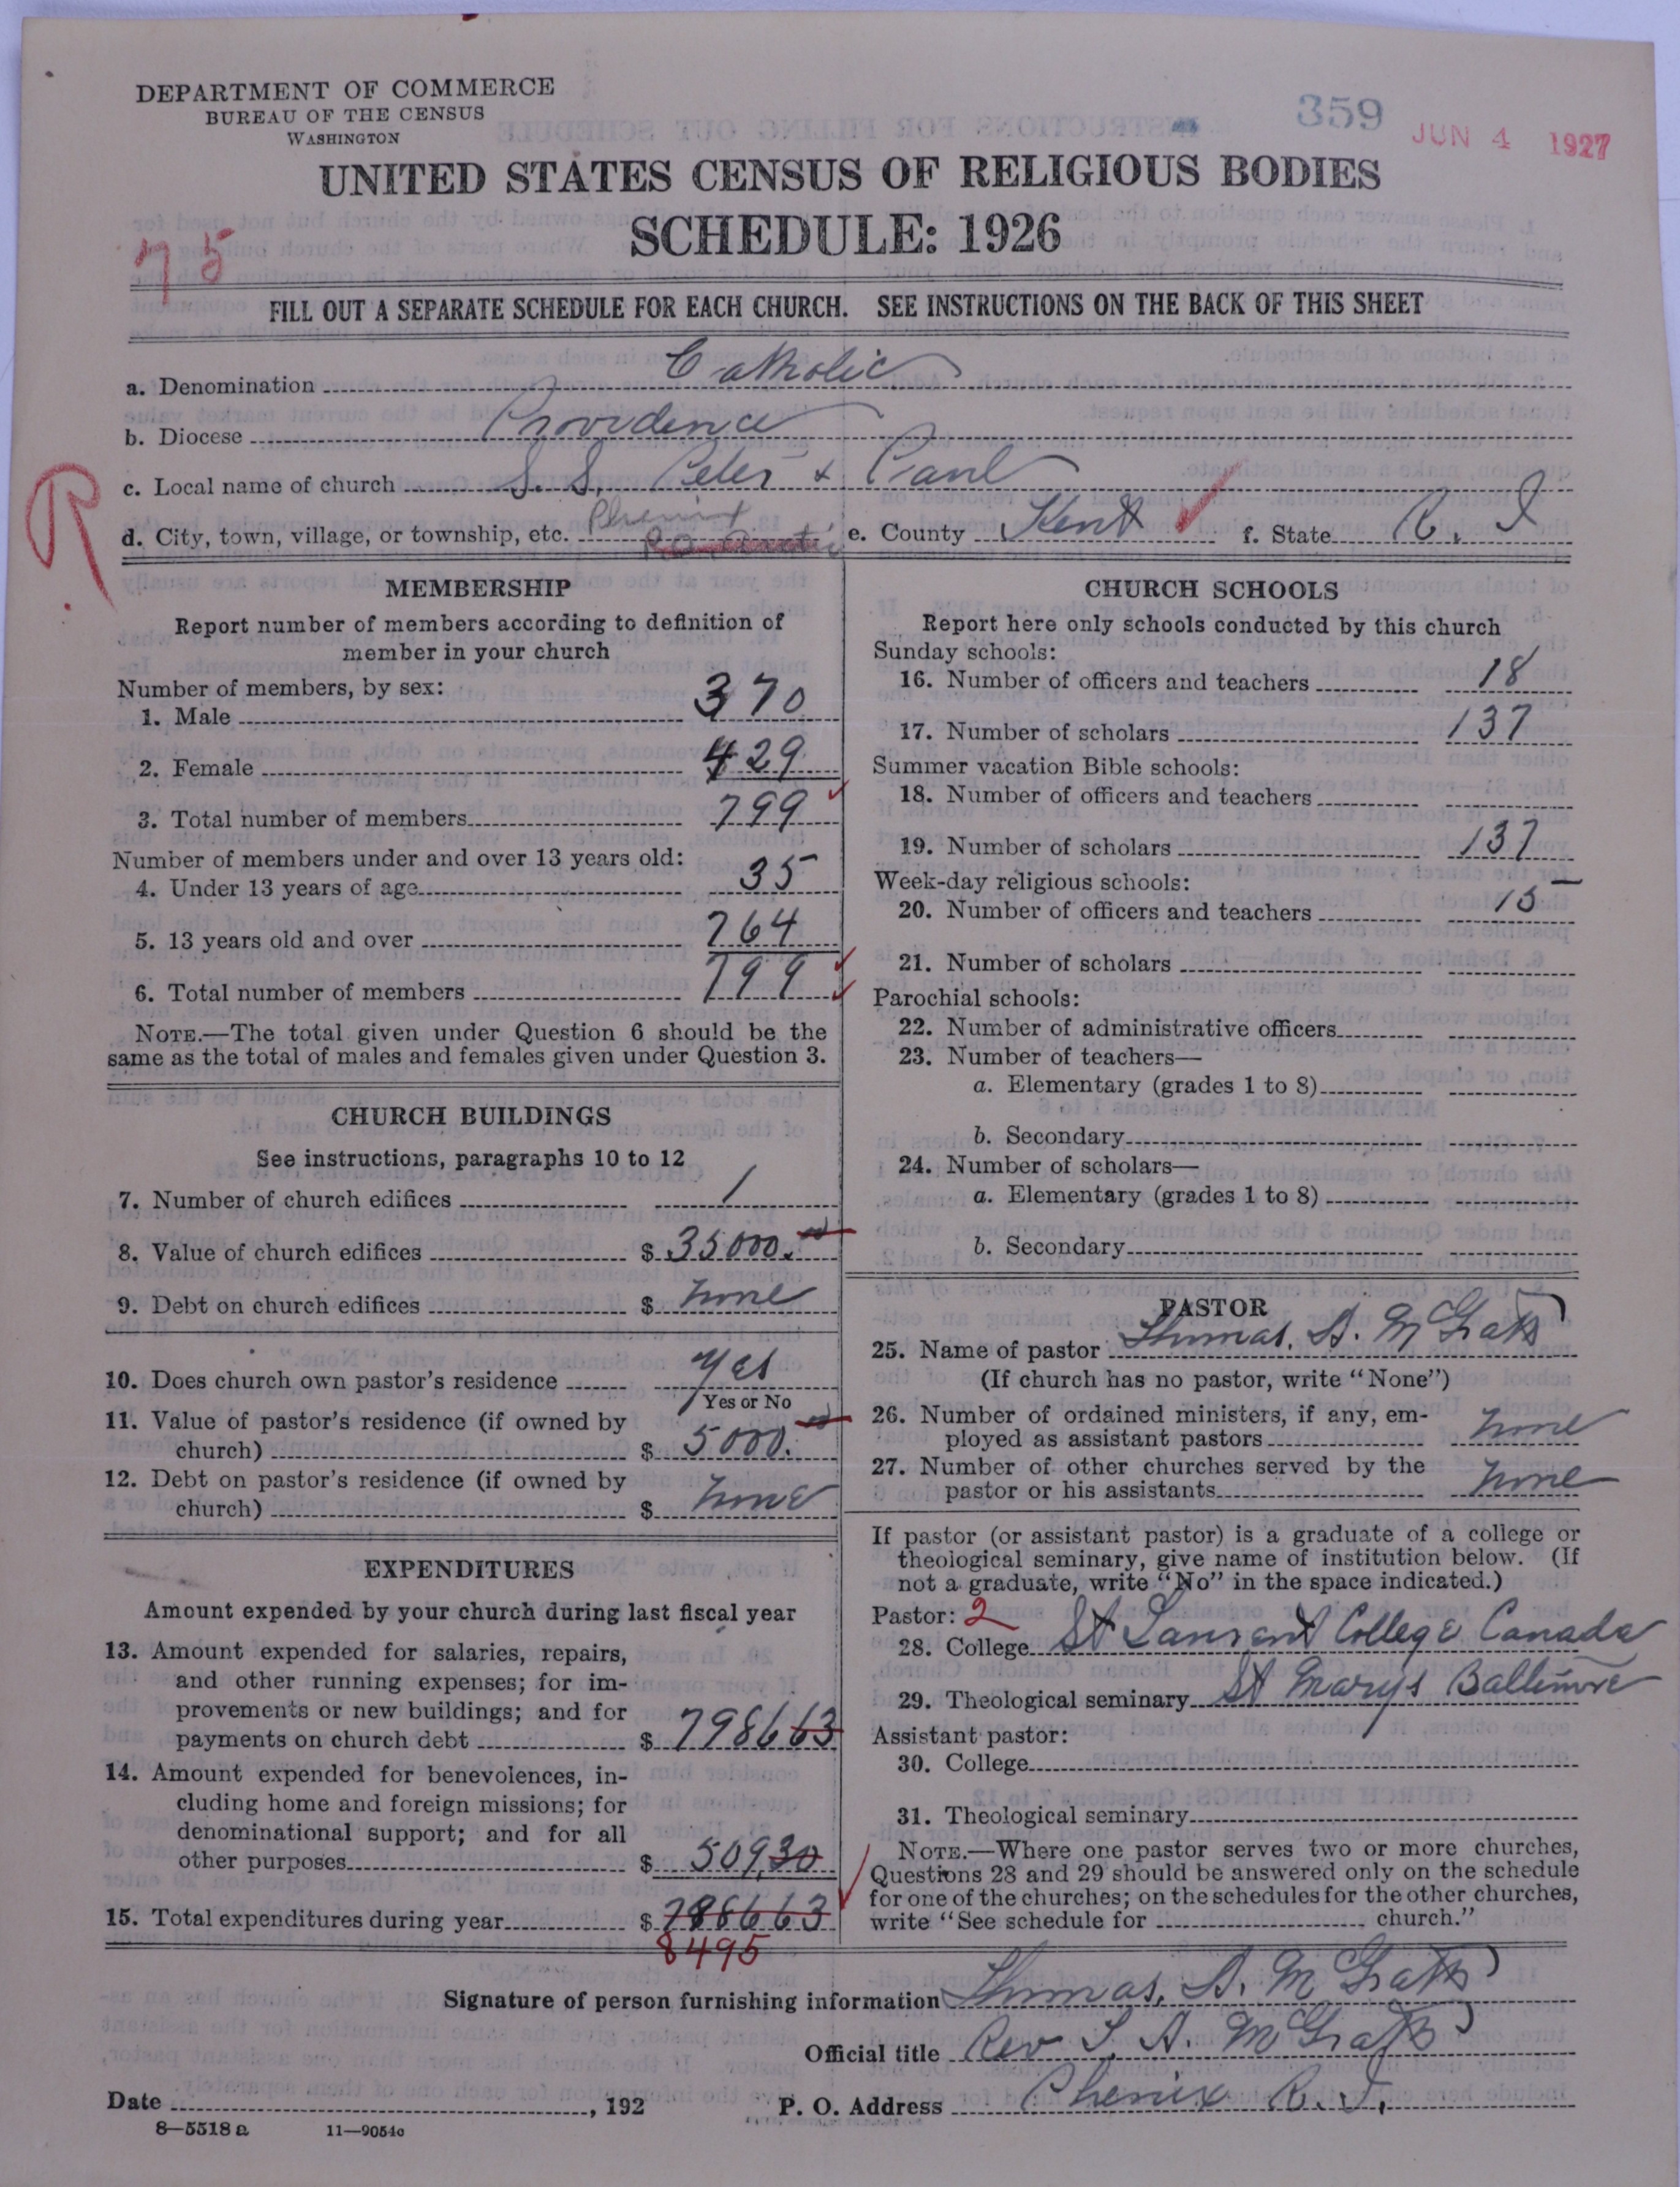 DEPARTMENT OF COMMERCE
BUREAU OF THE CENSUS
WASHINGTON
359
JUN 4 1927
UNITED STATES CENSUS OF RELIGIOUS BODIES
SCHEDULE: 1926
75
FILL OUT A SEPARATE SCHEDULE FOR EACH CHURCH. SEE INSTRUCTIONS ON THE BACK OF THIS SHEET
a. Denomination Catholic
b. Diocese Providence
R
c. Local name of church S.S. Peter + Paul
d. City, town, village, or township, etc. Phenix e. County Kent f. State R. I
MEMBERSHIP
Report number of members according to definition of
member in your church
Number of members, by sex:
1. Male 370
2. Female 429
3. Total number of members 799
Number of members under and over 13 years old:
4. Under 13 years of age 35
5. 13 years old and over 764
6. Total number of members 799
NOTE.—The total given under Question 6 should be the
same as the total of males and females given under Question 3.
CHURCH BUILDINGS
See instructions, paragraphs 10 to 12
7. Number of church edifices 1
8. Value of church edifices $ 35000.
9. Debt on church edifices $ none
10. Does church own pastor's residence yes
Yes or No
11. Value of pastor's residence (if owned by
church) $ 5000.
12. Debt on pastor's residence (if owned by
church) $ none
EXPENDITURES
Amount expended by your church during last fiscal year
13. Amount expended for salaries, repairs,
and other running expenses; for im-
provements or new buildings; and for
payments on church debt $ 798663
14. Amount expended for benevolences, in-
cluding home and foreign missions; for
denominational support; and for all
other purposes $ 509.30
15. Total expenditures during year $ 798663
8495
CHURCH SCHOOLS
Report here only schools conducted by this church
Sunday schools:
16. Number of officers and teachers 18
17. Number of scholars 137
Summer vacation Bible schools:
18. Number of officers and teachers
19. Number of scholars 137
Week-day religious schools:
20. Number of officers and teachers 15
21. Number of scholars
Parochial schools:
22. Number of administrative officers
23. Number of teachers—
a. Elementary (grades 1 to 8)
b. Secondary
24. Number of scholars—
a. Elementary (grades 1 to 8)
b. Secondary
PASTOR
25. Name of pastor Thomas. A. McGrath
(If church has no pastor, write "None")
26. Number of ordained ministers, if any, em-
ployed as assistant pastors none
27. Number of other churches served by the
pastor or his assistants none
If pastor (or assistant pastor) is a graduate of a college or
theological seminary, give name of institution below. (If
not a graduate, write "No" in the space indicated.)
Pastor: 2
28. College St Laurent College Canada
29. Theological seminary St Marys Baltimore
Assistant pastor:
30. College
31. Theological seminary
NOTE.—Where one pastor serves two or more churches,
Questions 28 and 29 should be answered only on the schedule
for one of the churches; on the schedules for the other churches,
write "See schedule for church."
Signature of person furnishing information Thomas. A. McGrath
Official title Rev T. A. McGrath
Date , 192 P. O. Address Phenix R. I.
8—5518 a 11—9054c